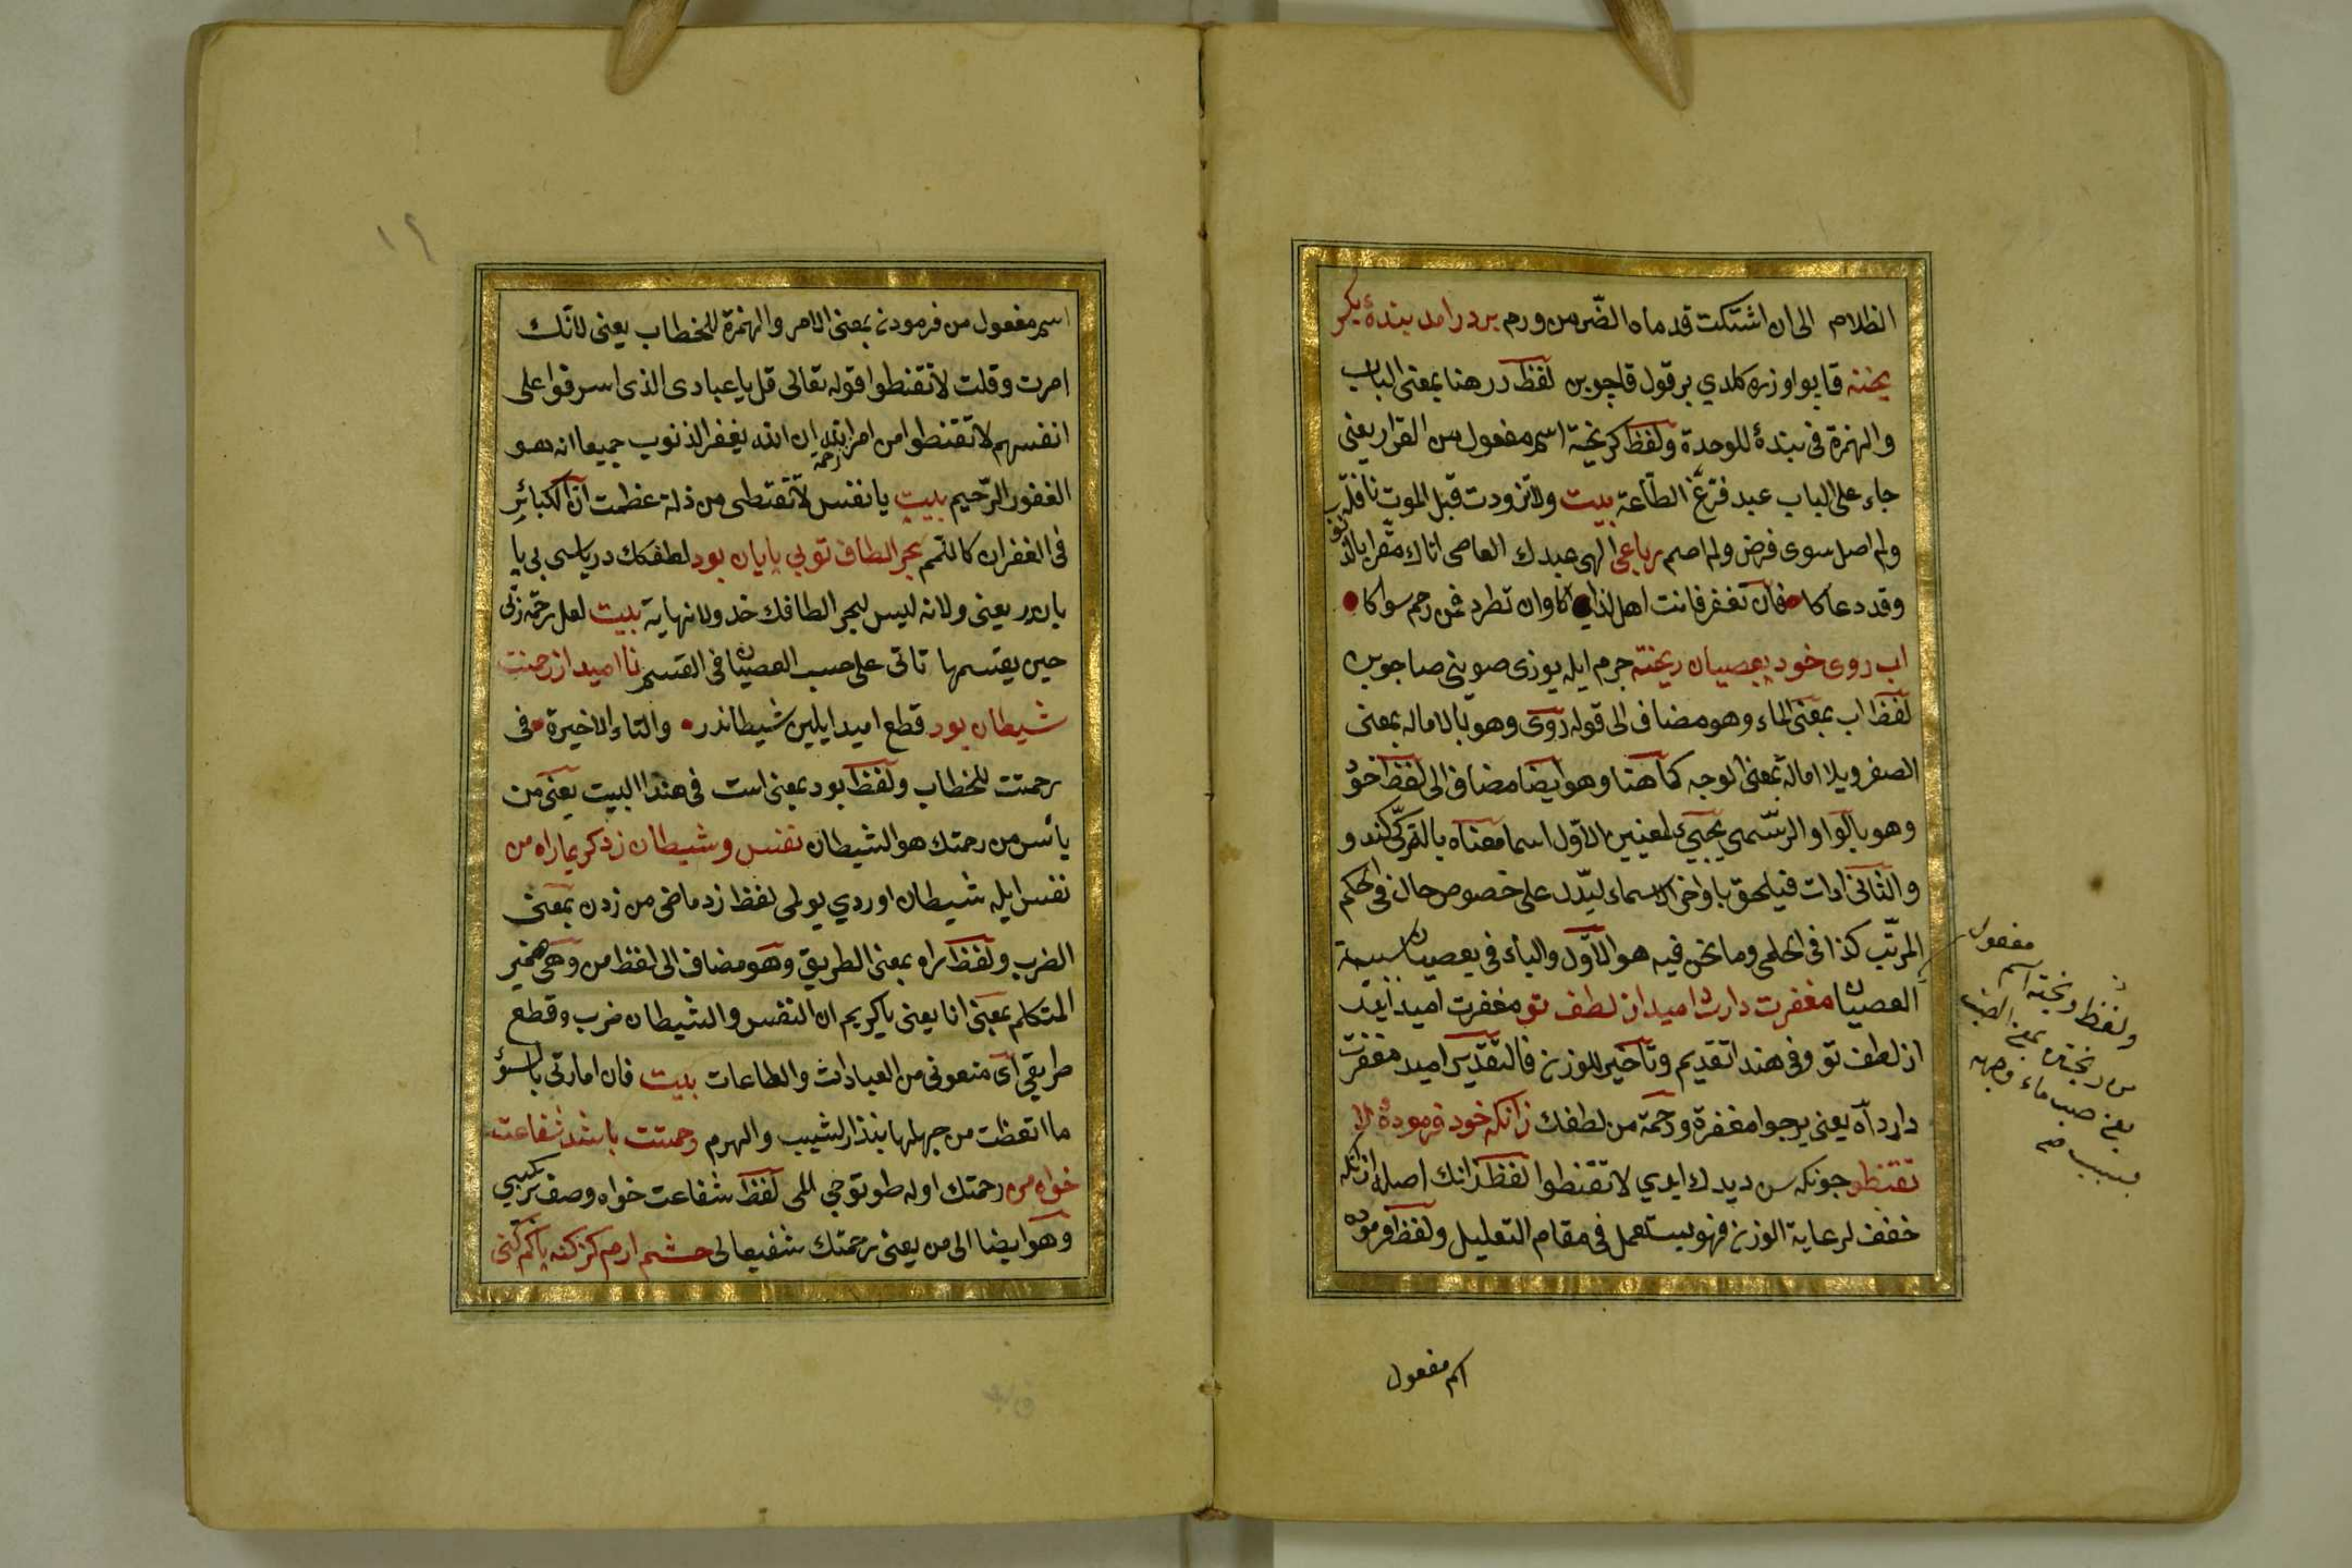 الظلام الى ان اشتكت قدماه الضّر من ورم بر در امد بندهٔ بكر
يخته قاپو اوزره كلدي بر قول قاچوبن لفظ در هنا بمعنى الباب
والهمزة فى بندهٔ للوحدة ولفظ كريخته اسم مفعول من الفرار يعنى
جاء على الباب عبد فرّ عن الطّاعة بيت ولا تزودت قبل الموت نافلة
ولم اصل سوى فرض ولم اصم رباعى الهى عبدك العاصى اتاك مقرا بالذنو
وقد دعاكا فان تغفر فانت اهل لذاكا وان تطرد فمن رحم سواكا
اب روى خود بعصيان ريخته جرم ايله يوزى صوينى صاچوبن
لفظ اب بمعنى الماء وهو مضاف الى قوله روى وهو بالاماله بمعنى
الصفر وبلا امالة بمعنى الوجه كما هنا وهو ايضا مضاف الى لفظ خود
وهو بالواو الرّسمى يجيئ لمعنيين الاوّل اسما معناه بالتركى كندو
والثانى ادات فيلحق باواخر الاسماء ليدّل على خصوص حال فى الحكم
المرتّب كذا فى الحلمى وما نحن فيه هو الاوّل والباء فى بعصيان سببية
العصيان مغفرت دارد اميد از لطف تو مغفرت اميد ايدر
از لطف تو وفى هذا تقديم وتأخير للوزن فالتقدير اميد مغفرت
دارد آه يعنى يرجوا مغفرة ورحمة من لطفك زانكه خود فرمودهٔ لا
تقنطو جونكه سن ديدك ايدي لا تقنطوا لفظ زانك اصله از انكه
خفف لرعاية الوزن فهو يستعمل فى مقام التعليل ولفظ فرموده
مفعول
ولفظ ريخته اسم
من ريختن بمعنى الصب
يعنى صب ماء وجهه
بسبب
اسم مفعول
١٢
اسم مفعول من فرمودن بمعنى الامر والهمزة للخطاب يعنى لانك
امرت وقلت لا تقنطوا قوله تعالى قل يا عبادى الذى اسرفوا على
انفسهم لا تقنطوا من رحمة الله ان الله يغفر الذنوب جميعا انه هو
الغفور الرّحيم بيت يا نفس لا تقنطى من ذلة عظمت ان الكبائر
فى الغفران كاللمم بحر الطاف تو بى پايان بود لطفك درياسى بى پا
ياندر يعنى ولانه ليس لبحر الطافك حد ولا نهاية بيت لعل رحمة ربّى
حين يقسمها تاتى على حسب العصيان فى القسم نا اميد از رحمتت
شيطان بود قطع اميد ايلين شيطاندر والتاء الاخيرة فى
رحمتت للخطاب ولفظ بود بمعنى است فى هذا البيت يعنى من
يأس من رحمتك هو الشيطان نفس وشيطان زد كريما راه من
نفس ايله شيطان اوردي يولمى لفظ زد ماضى من زدن بمعنى
الضرب ولفظ راه بمعنى الطريق وهو مضاف الى لفظ من وهى ضمير
المتكلم بمعنى انا يعنى يا كريم ان النفس والشيطان ضرب وقطع
طريقى اى منعونى من العبادات والطاعات بيت فان امارتى بالسوٓء
ما اتعظت من جهلها بنذير الشيب والهرم رحمتت باشد شفاعت
خواه من رحمتك اوله طوتوجى اللى لفظ شفاعت خواه وصف تركيبي
وهو ايضا الى من يعنى رحمتك شفيعا لى چشم ارم كز كنه پاكم كنى